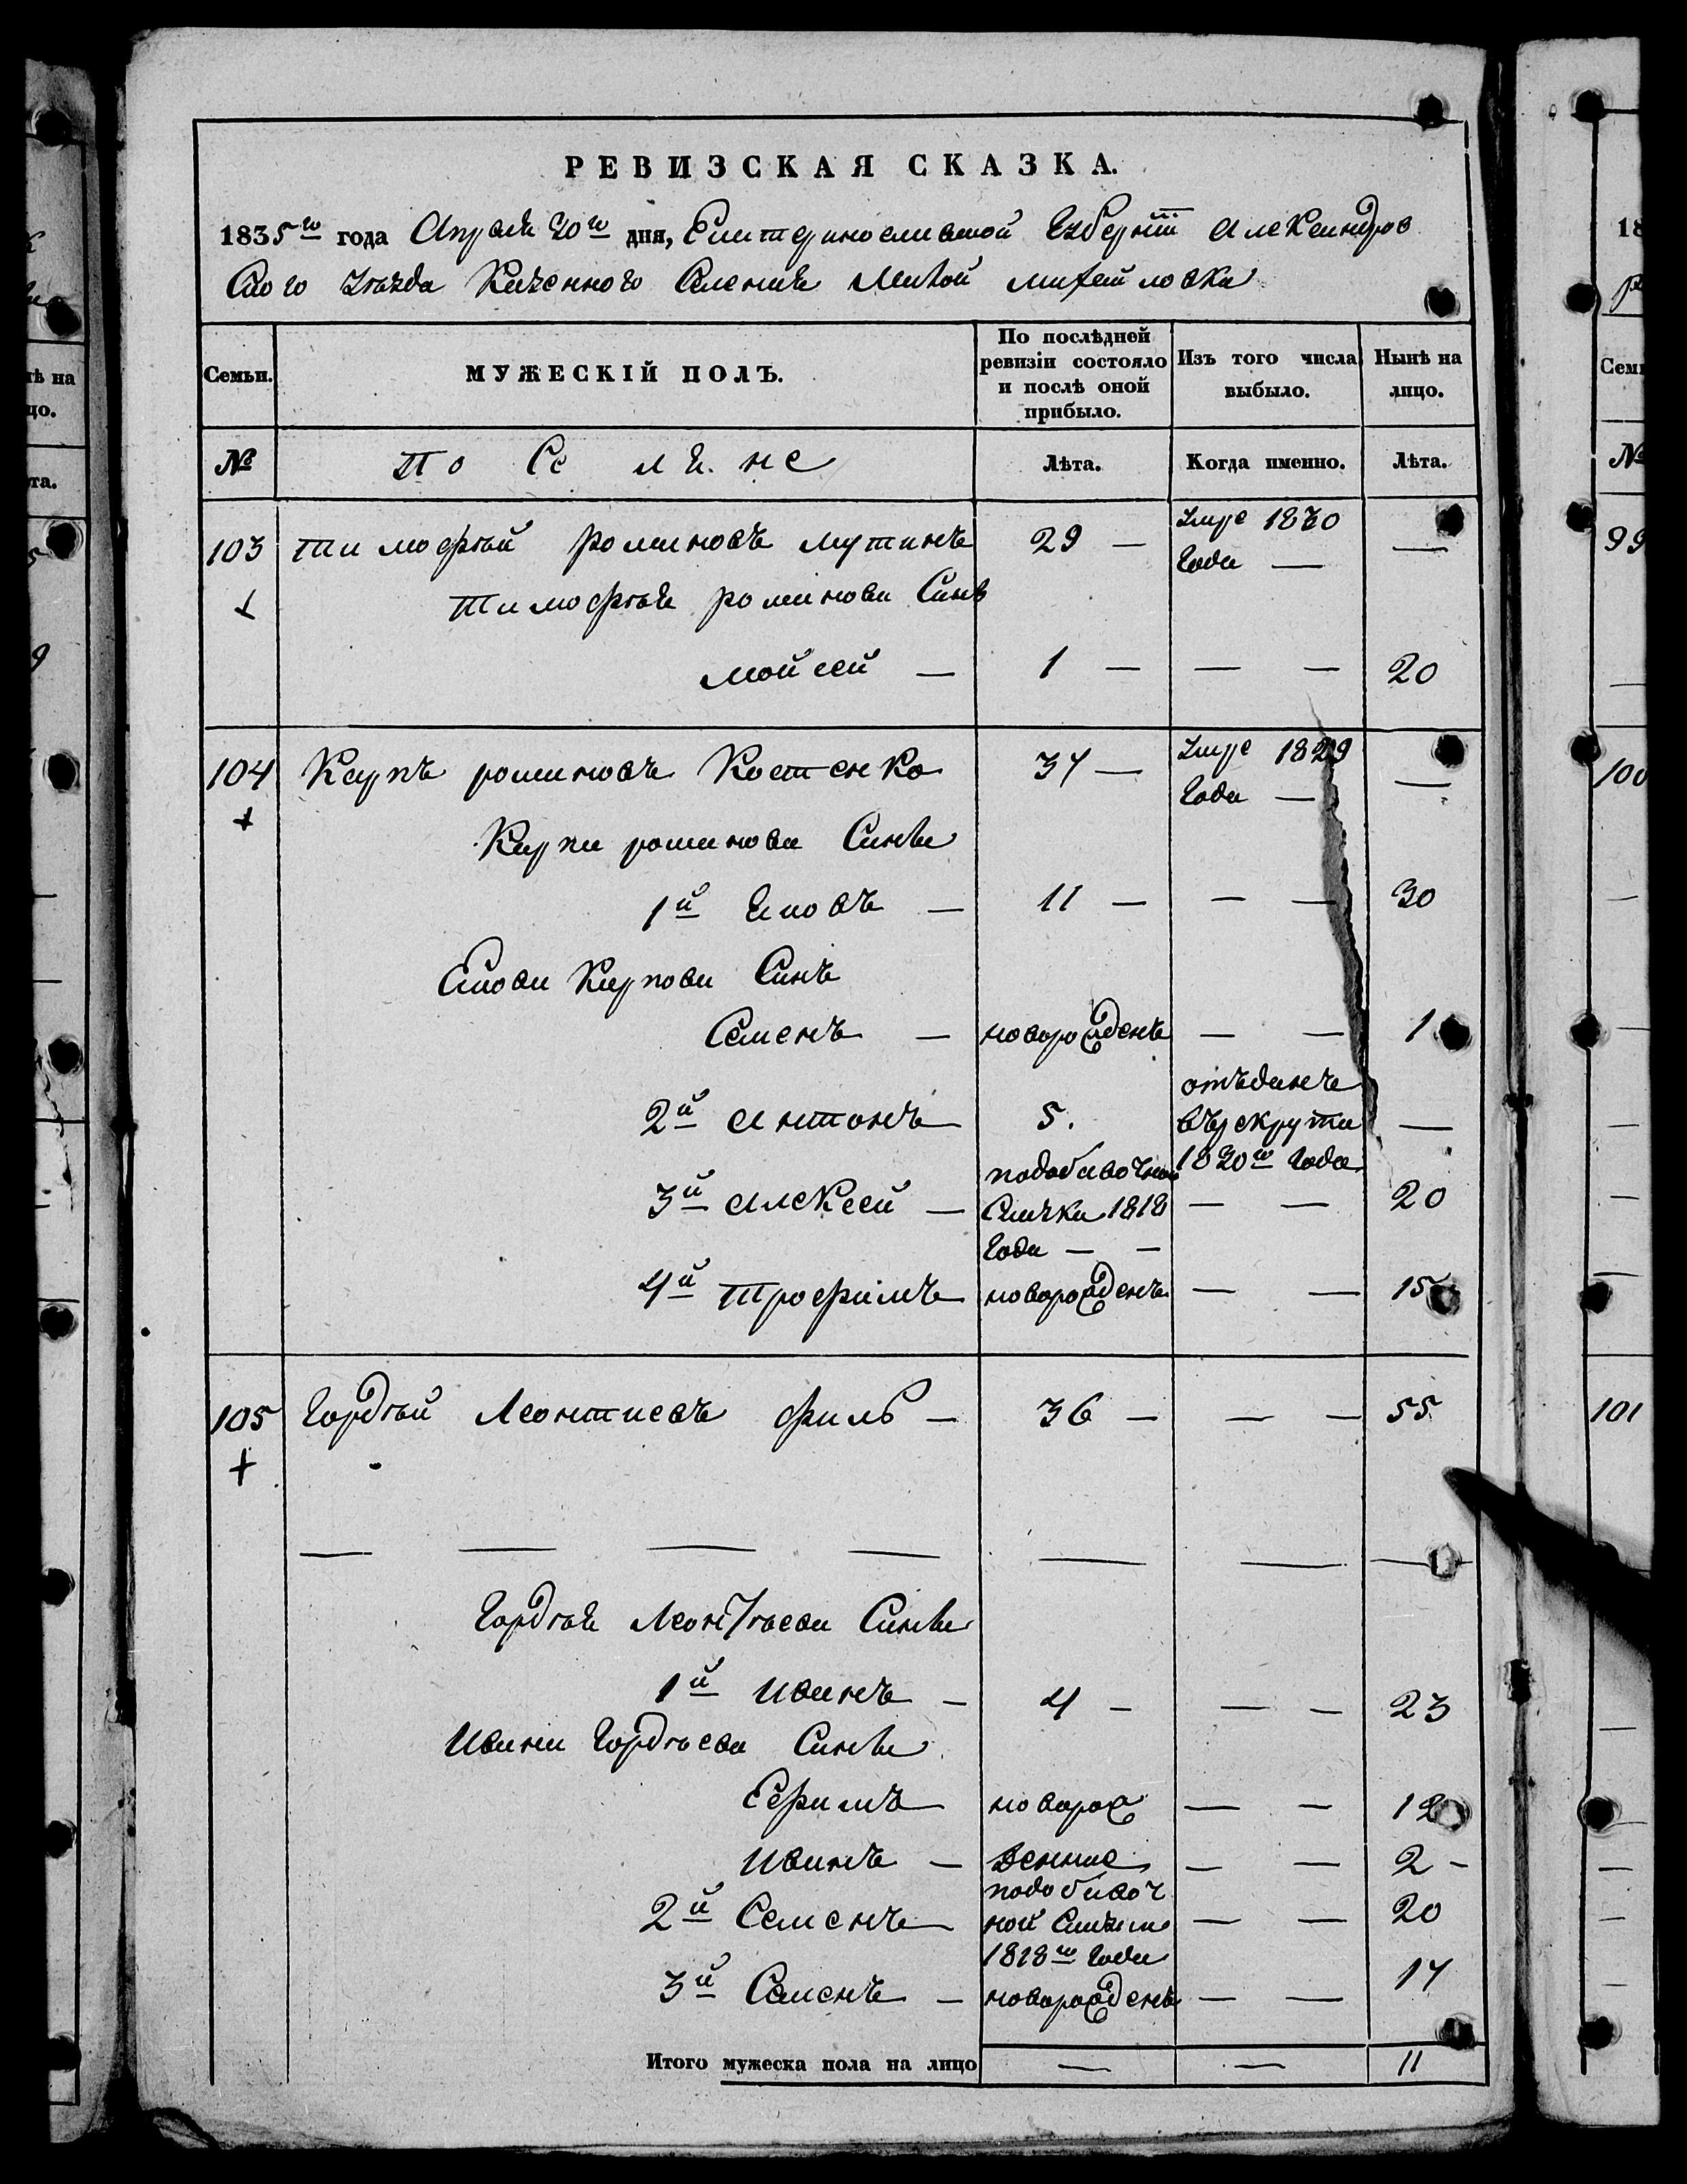 РЕВИЗСКАЯ СКАЗКА.
1835го года Апреля 20го дня, Екатеринославской Губернии Александров
Ского уезда Казенного Селения Малой михайловки
Семьи.
МУЖЕСКІЙ ПОЛЪ.
По послѣдней ревизіи состояло и послѣ оной прибыло.
Изъ того числа выбыло.
Нынѣ на лицо.
№
По Се ле. не
Лѣта.
Когда именно.
Лѣта.
103 тимофѣй романовъ 29 — умре 1830 —
года —
тимофѣя романова Синъ
мойсей — 1 — — — 20
104 Карпъ романовъ Костенко 37 — умре 1829 —
года —
Карпа романова Сини
1й Яковъ — 11 — — — 30
Якова Карпова Синъ
Семенъ — новорожденъ — — 1
отъданъ
2й антонъ 5. въ рекрути —
1820го года
3й алексей — Сказки 1818 — — 20
года — —
4й трофимъ новорожденъ — — 15
105 Гордѣй Леонтиевъ филь — 36 — — — 55
— — — — — — —
Гордѣя Леонтѣева Сини
1й иванъ — 4 — — — 23
ивана Гордѣева Сини
Ефимъ новорож — —
иванъ — денние — — 2 -
2й Семенъ — — 20
1818го года
3й Семенъ — новорожденъ — — 17
Итого мужеска пола на лицо — — 11
99
100
101